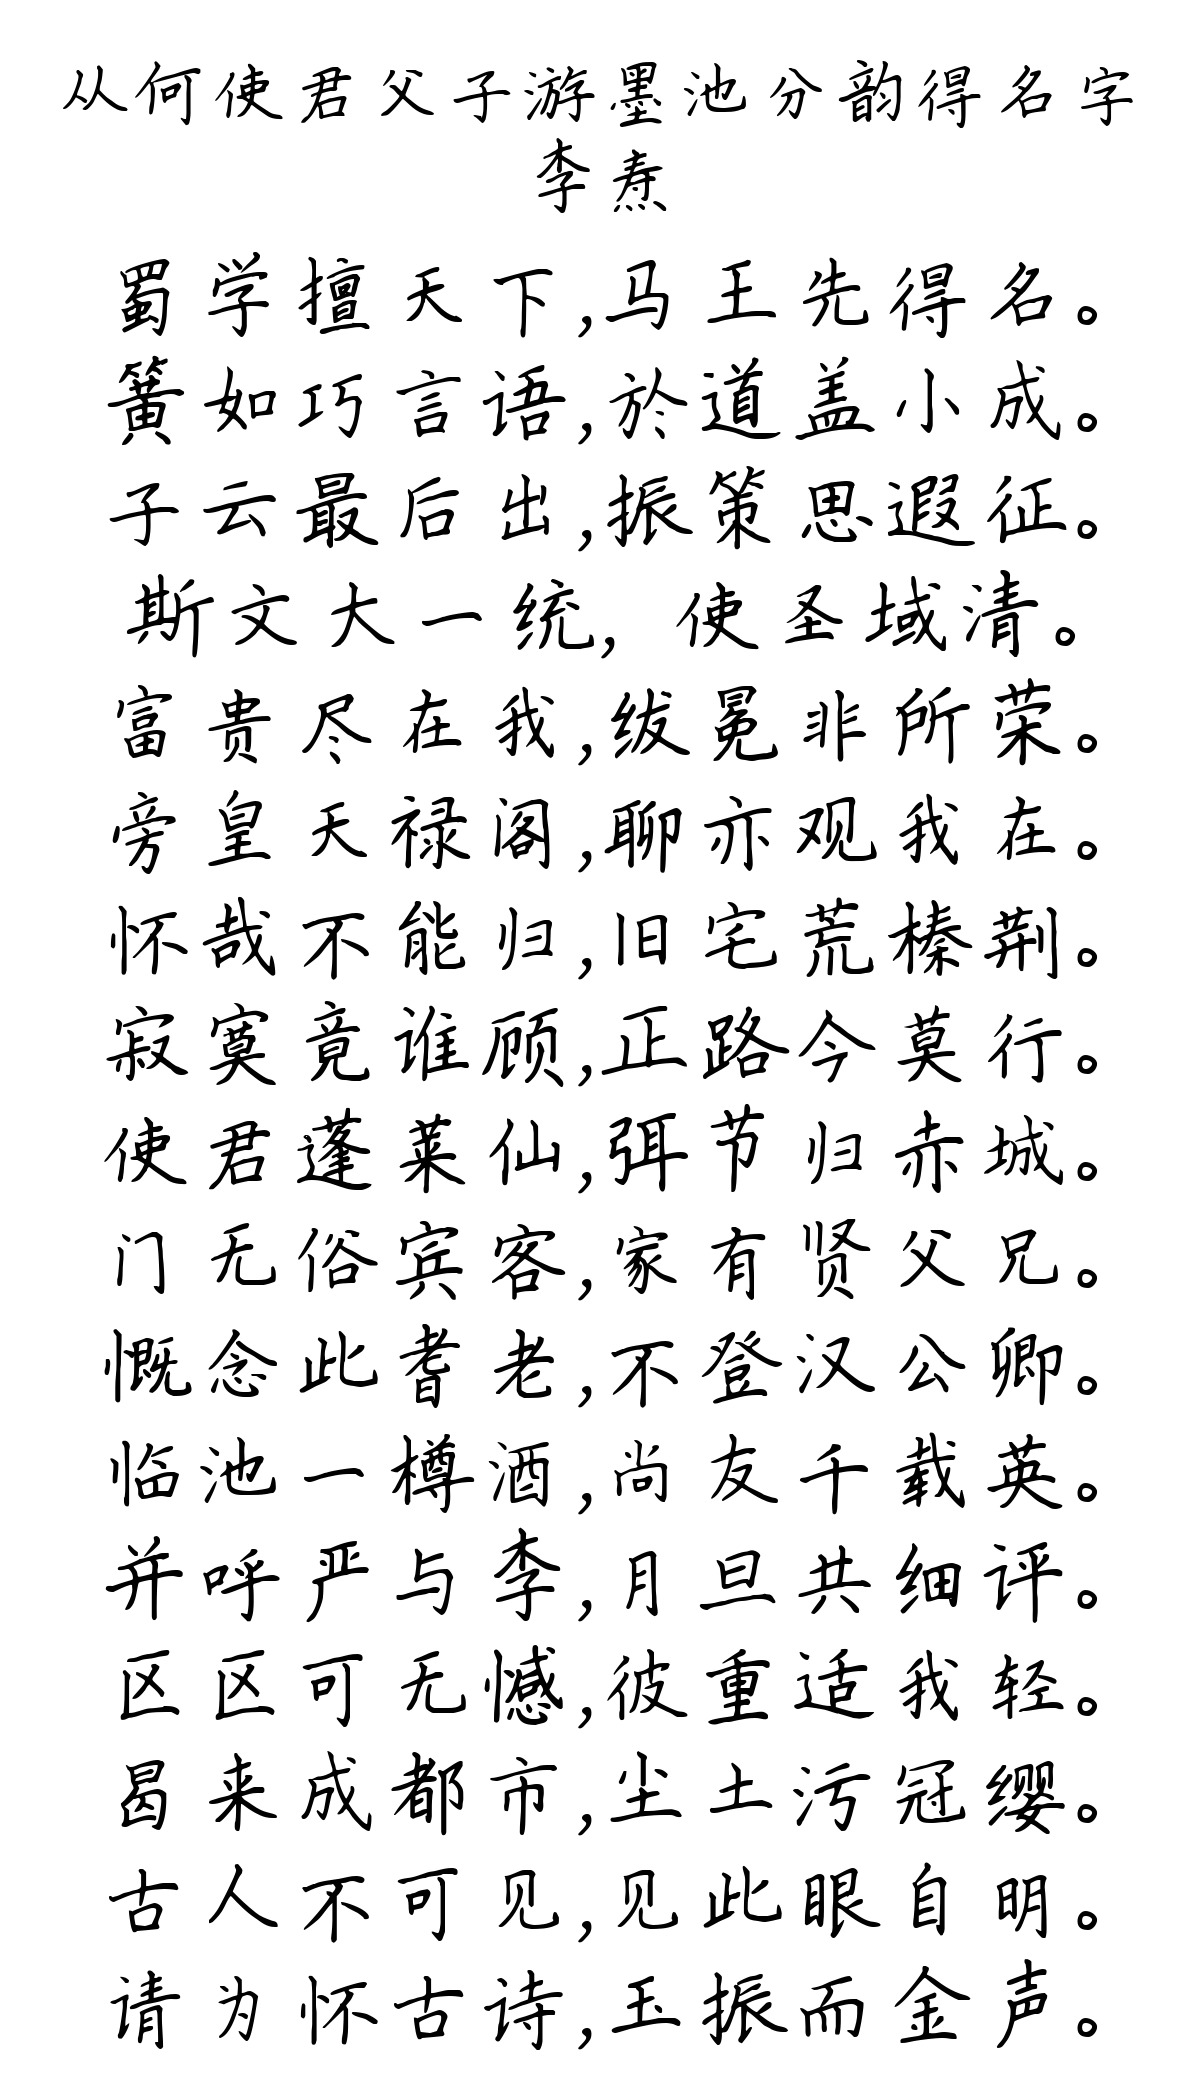 从何使君父子游墨池分韵得名字
李焘
蜀学擅天下,马王先得名。
簧如巧言语,於道盖小成。
子云最后出,振策思遐征。
斯文大一统,使圣域清。
富贵尽在我,绂冕非所荣。
旁皇天禄阁,聊亦观我在。
怀哉不能归,旧宅荒榛荆。
寂寞竟谁顾,正路今莫行。
使君蓬莱仙,弭节归赤城。
门无俗宾客,家有贤父兄。
慨念此耆老,不登汉公卿。
临池一樽酒,尚友千载英。
并呼严与李,月旦共细评。
区区可无憾,彼重适我轻。
曷来成都市,尘土污冠缨。
古人不可见,见此眼自明。
请为怀古诗,玉振而金声。